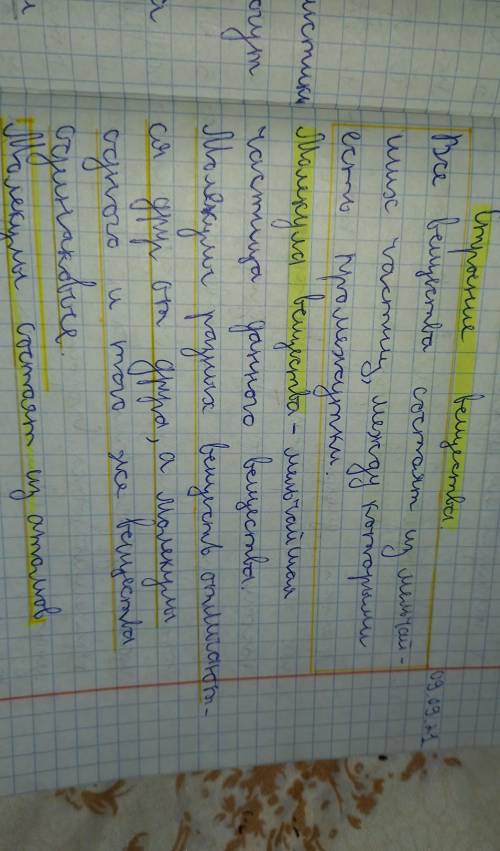 09.09.21
Строение вещества
Все вещества состоят из мельчай-
ших частиц, между которыми
есть промежутки.
Молекула вещества - мельчайшая
частица данного вещества.
Молекулы разных веществ отличают-
ся друг от друга, а молекулы
одного и того же вещества
одинаковые.
Молекулы состоят из атомов
огут